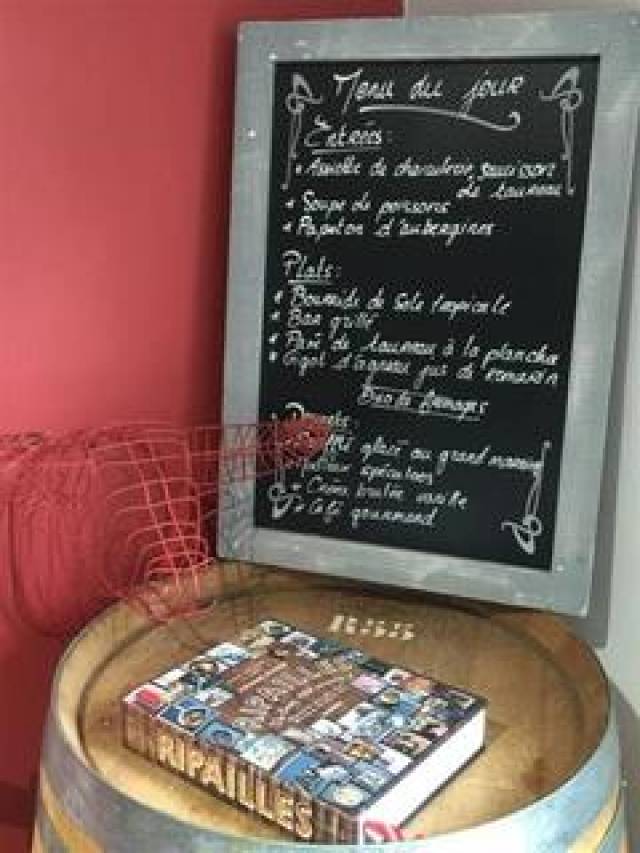 Menu du jour
Entrées:
* Assiette de charcuterie, saucisson
de taureau
* Soupe de poissons
* Papeton d'aubergines
Plats:
* Bourride de Sole tropicale
* Bar grillé
* Pavé de taureau à la plancha
* Gigot d'agneau jus de romarin
glacé au grand marnier
spéculoos
* Crème brulée vanille
* Café gourmand
RIPAILLES